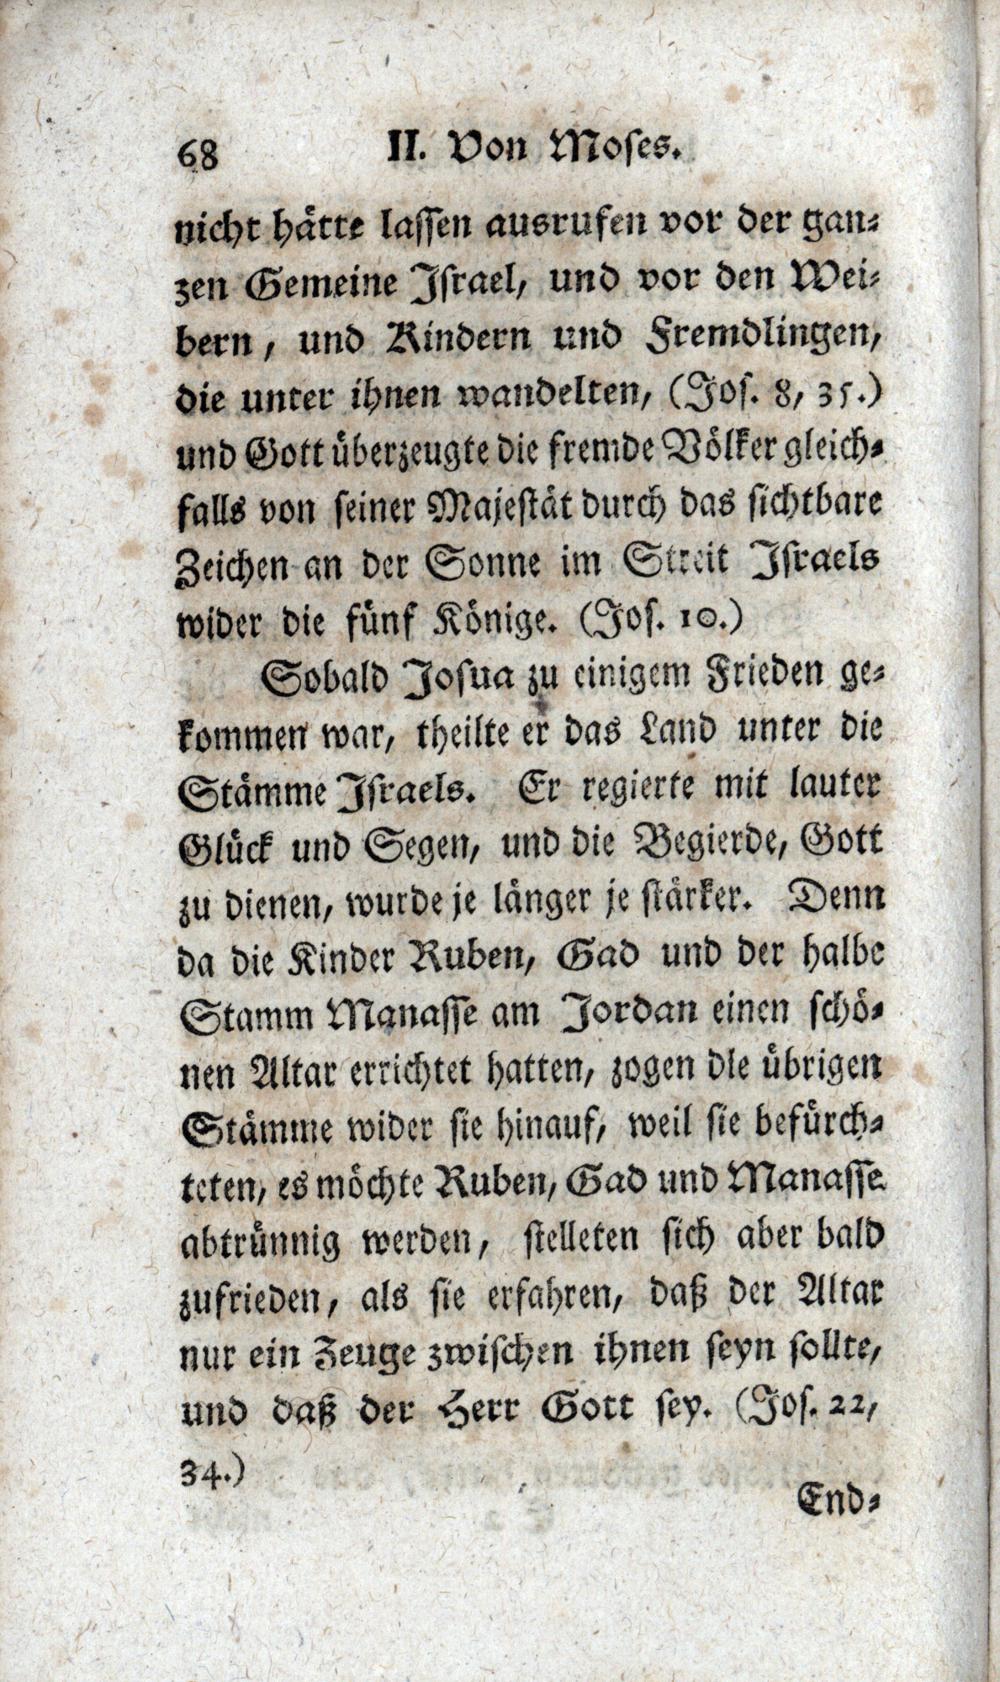 68 II. Von Moses.
nicht hätte lassen ausrufen vor der gan⸗
zen Gemeine Israel, und vor den Wei⸗
bern, und Kindern und Fremdlingen,
die unter ihnen wandelten, (Jos. 8, 35.)
und Gott überzeugte die fremde Völker gleich⸗
falls von seiner Majestät durch das sichtbare
Zeichen an der Sonne im Streit Israels
wider die fünf Könige. (Jos. 10.)
Sobald Josua zu einigem Frieden ge⸗
kommen war, theilte er das Land unter die
Stämme Israels. Er regierte mit lauter
Glück und Segen, und die Begierde, Gott
zu dienen, wurde je länger je stärker. Denn
da die Kinder Ruben, Gad und der halbe
Stamm Manasse am Jordan einen schö⸗
nen Altar errichtet hatten, zogen die übrigen
Stämme wider sie hinauf, weil sie befürch⸗
teten, es möchte Ruben, Gad und Manasse
abtrünnig werden, stelleten sich aber bald
zufrieden, als sie erfahren, daß der Altar
nur ein Zeuge zwischen ihnen seyn sollte,
und daß der Herr Gott sey. (Jos. 22,
34.)
End⸗